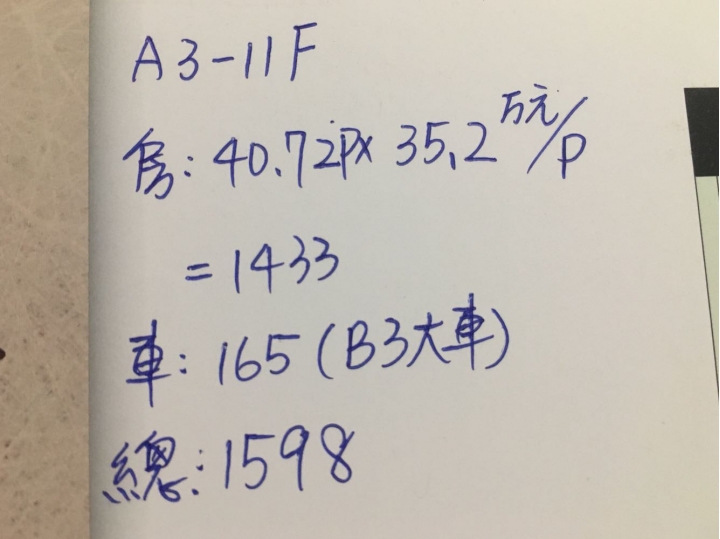 A3-11F
房: 40.72P× 35.2万元/P
= 1433
車: 165 (B3大車)
總: 1598